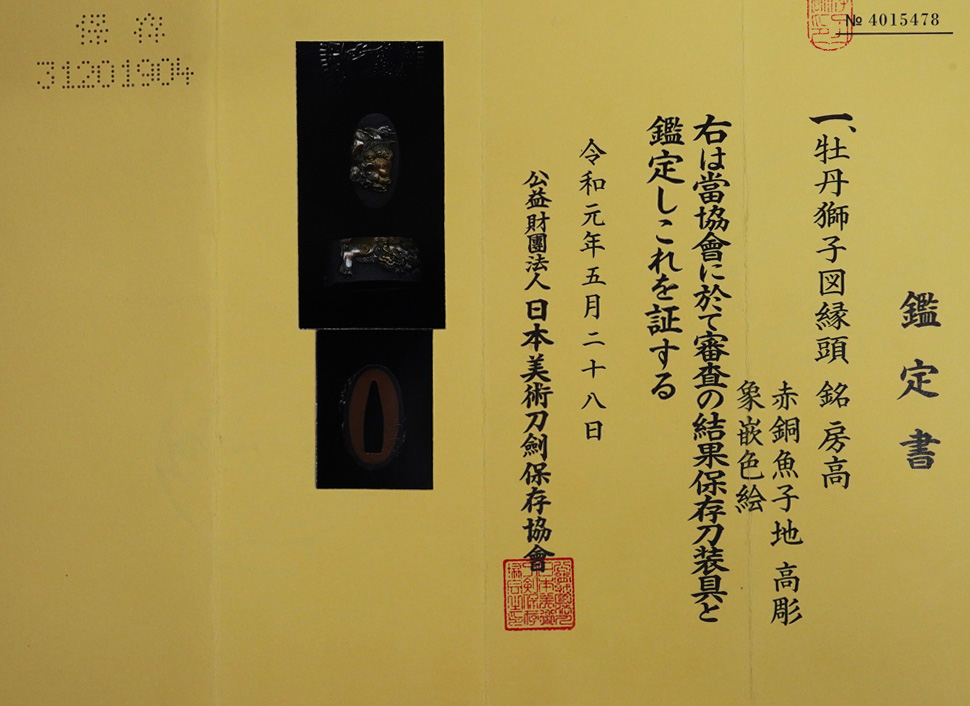 鑑定書
№ 4015478
一、牡丹獅子図縁頭 銘 房高
赤銅魚子地 高彫
象嵌色絵
右は當協會に於て審査の結果保存刀装具と
鑑定しこれを証する
令和元年五月二十八日
公益財團法人 日本美術刀劍保存協會
保存
31201904